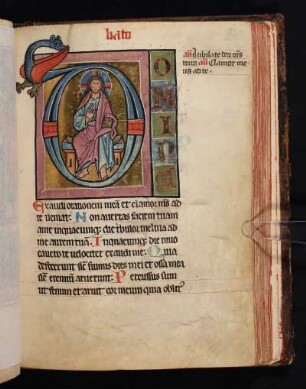 bato
an̄ Iubilate deo om̄s
terra an̄ Clamor me
us ad te.
DOMINE
Exaudi orationem meā et clamor m̄s ad
te ueniat: Non auertas faciem tuam
a me inquacumq; die tribulor inclina ad
me aurem tuā: Inquacumq; die inuo
cauero te uelociter exaudi me: Quia
defecerunt sic̄ fumus dies mei et ossa mea
sic̄ cremiū aruerunt: Percussus sum
ut fenum et aruit cor meum quia oblit